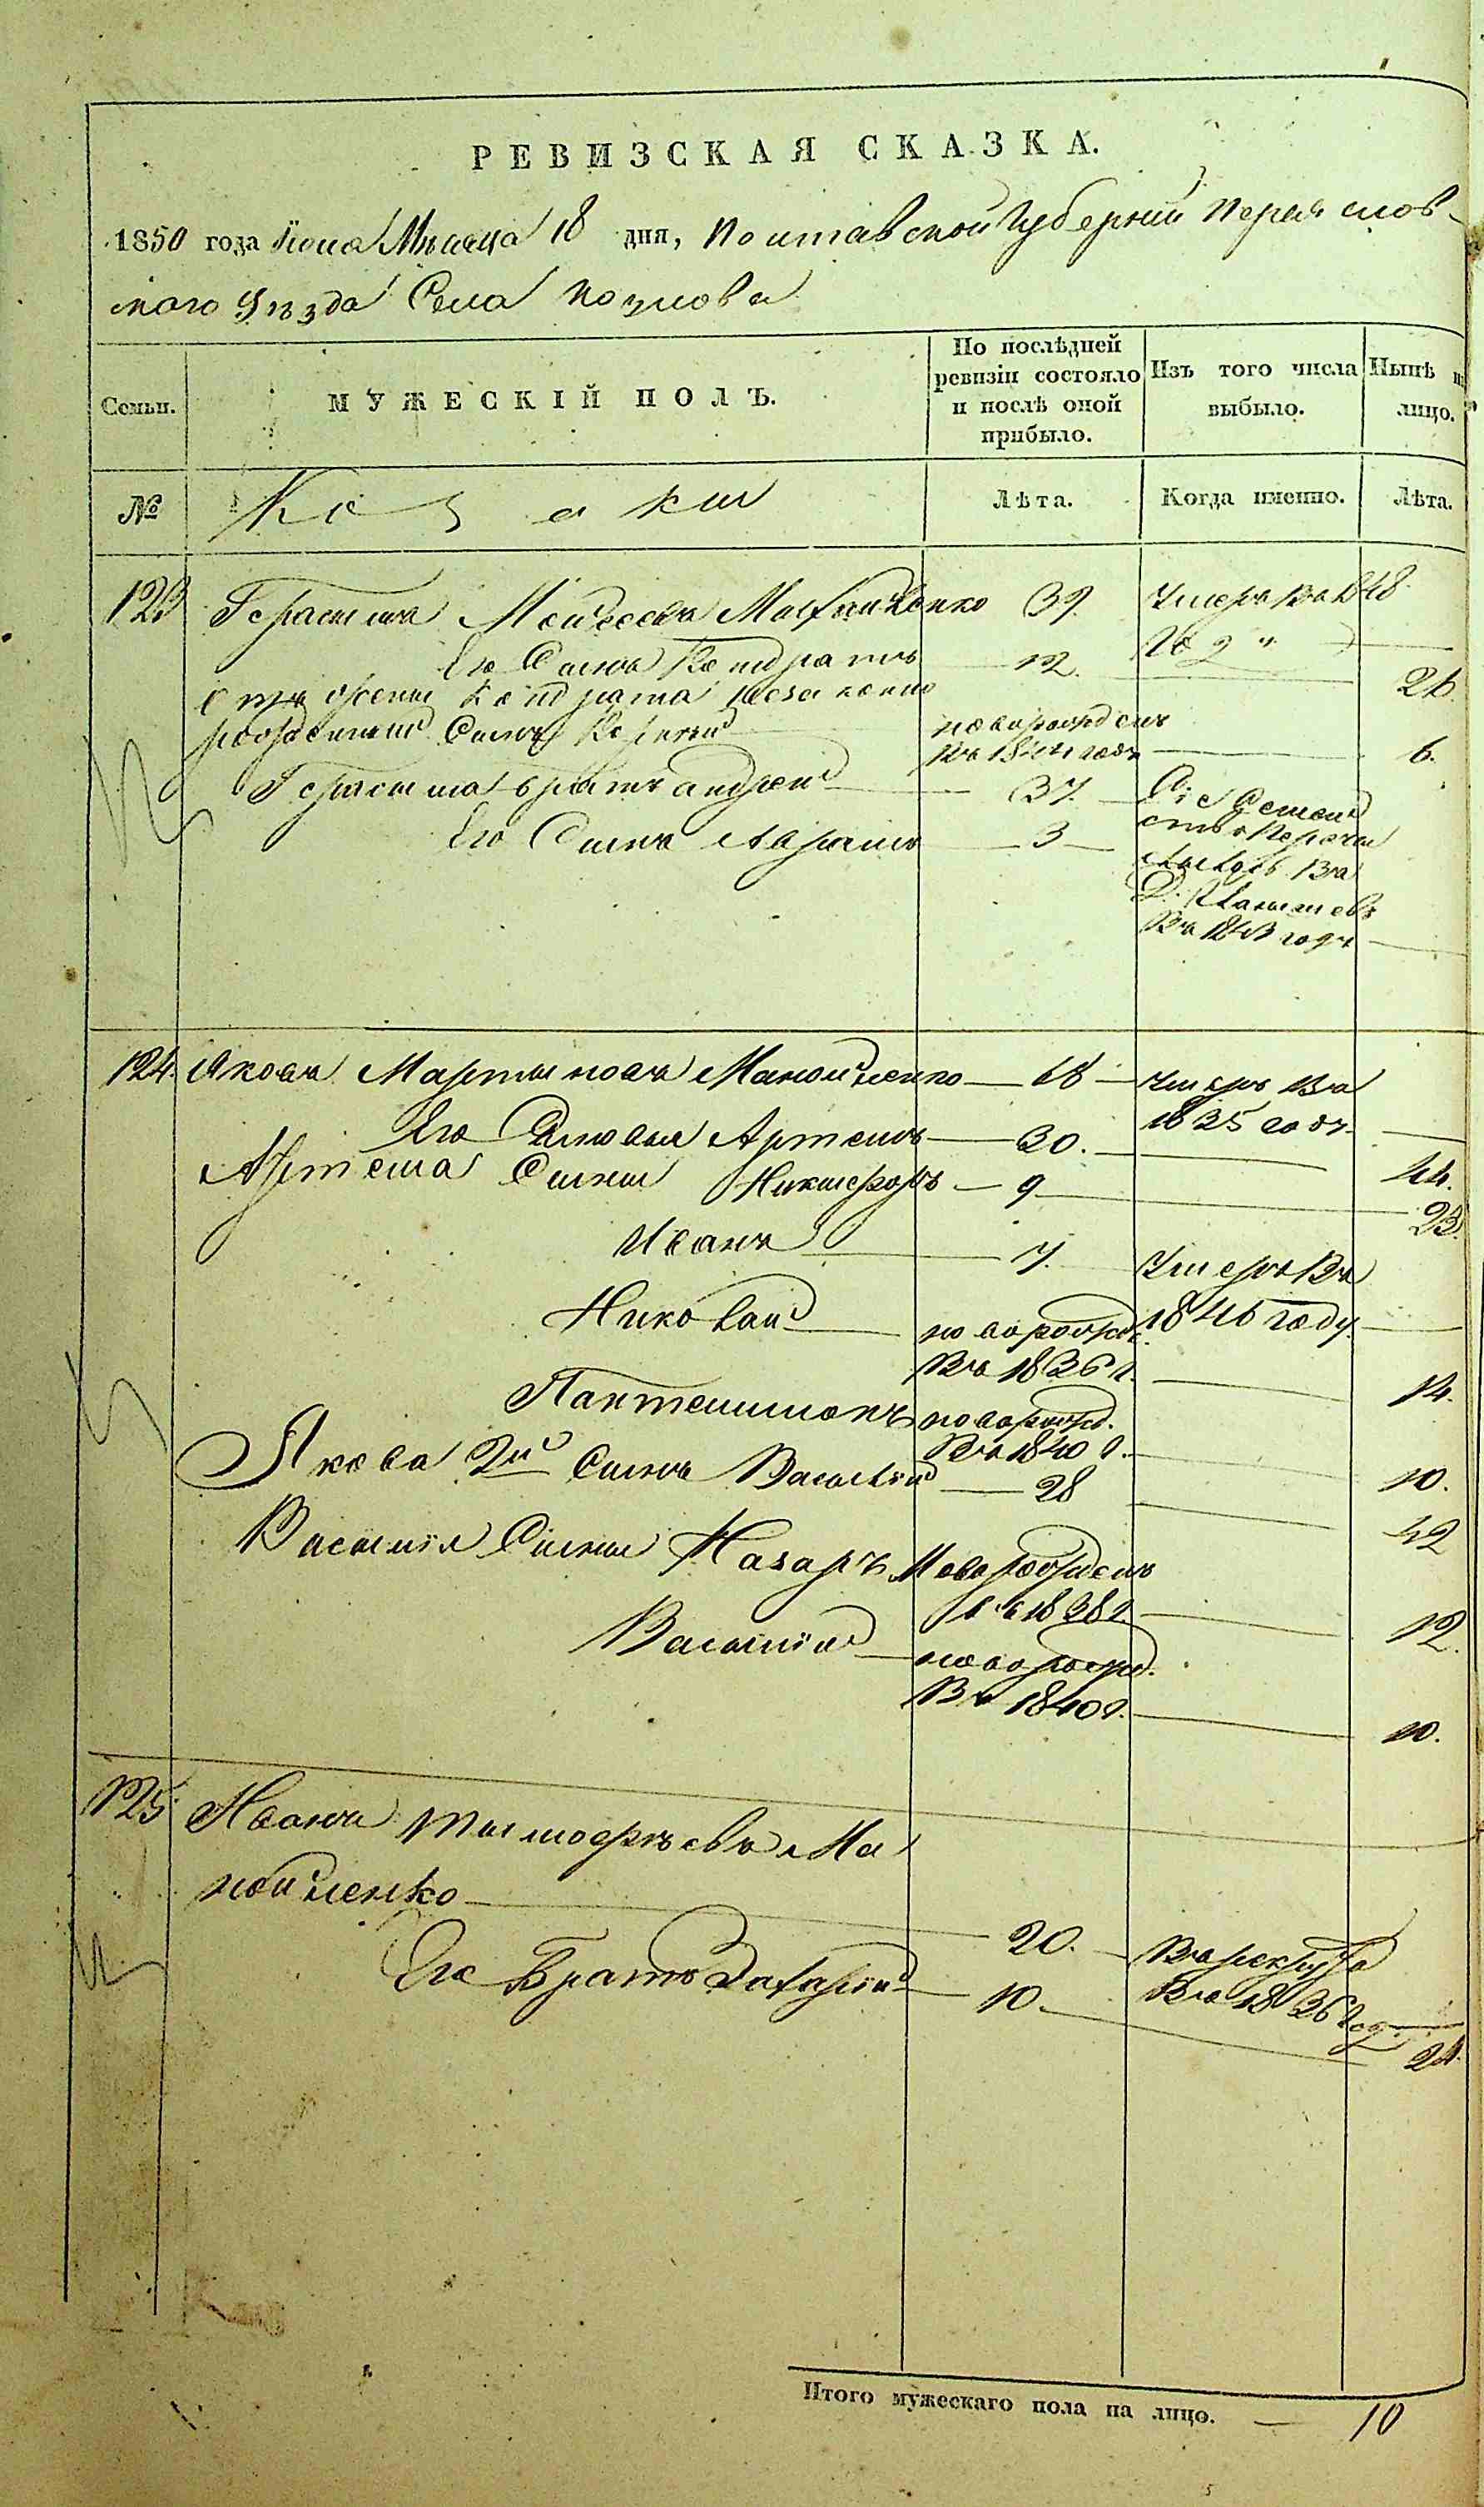 РЕВИЗСКАЯ СКАЗКА.
1850 года Июня Мѣсяца 18 дня, Полтавской Губерніи Переяслов-
ского Уѣзда Села Козлова
Семьи.
МУЖЕСКІЙ ПОЛЪ.
По послѣдней ревизіи состояло и послѣ оной прибыло.
Изъ того числа выбыло.
Нынѣ на лицо.
№ Козаки Лѣта. Когда именно. Лѣта.
123 Герасимъ Моисеевъ 39. Умеръ въ 1848
Его Сынъ Кондратъ 12. 26
отъ жены Кондрата незаконно
рожденный Сынъ новорожденъ
въ 1844 годѣ 6.
Герасима братъ андрей 37. Сіе Семей
Его Сынъ 3 ство
въ
Д.
въ 1843 годѣ
124. Яковъ Мартыновъ Манойленко 68 умеръ въ
1835 годѣ
Его Сыновья Артемъ 30. 44.
Артема Сыны Никифоръ 9 23.
Иванъ 7. Умеръ въ
1846 году
Николай новорожд.
въ 1836 г. 14.
Пантелимонъ новорожд.
въ 1840 г. 10.
Якова 2й Сынъ Василій 28 42
Василія Сыны Назаръ Новорожденъ
въ 1838 г. 12.
Василій новорожд.
въ 1840 г. 10.
125 Иванъ Тимофѣевъ Ма
нойленко 20. Въ рекруты
въ 1836 год
Его Братъ Захарій 10 24.
Итого мужескаго пола на лицо. 10